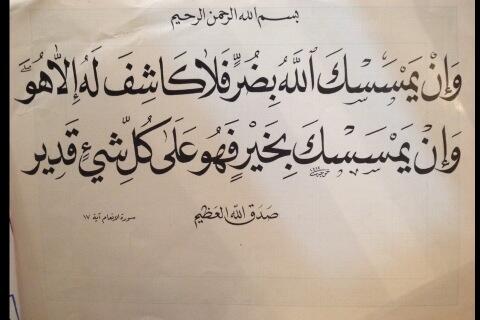 بسم الله الرحمن الرحيم
وَإِنْ يَمْسَسْكَ ٱللَّهُ بِضُرٍّ فَلَا كَاشِفَ لَهُ إِلَّا هُوَ
وَإِنْ يَمْسَسْكَ بِخَيْرٍ فَهُوَ عَلَىٰ كُلِّ شَيْءٍ قَدِير
صَدَقَ اللَّهُ العَظِيم
سورة الانعام آية ١٧